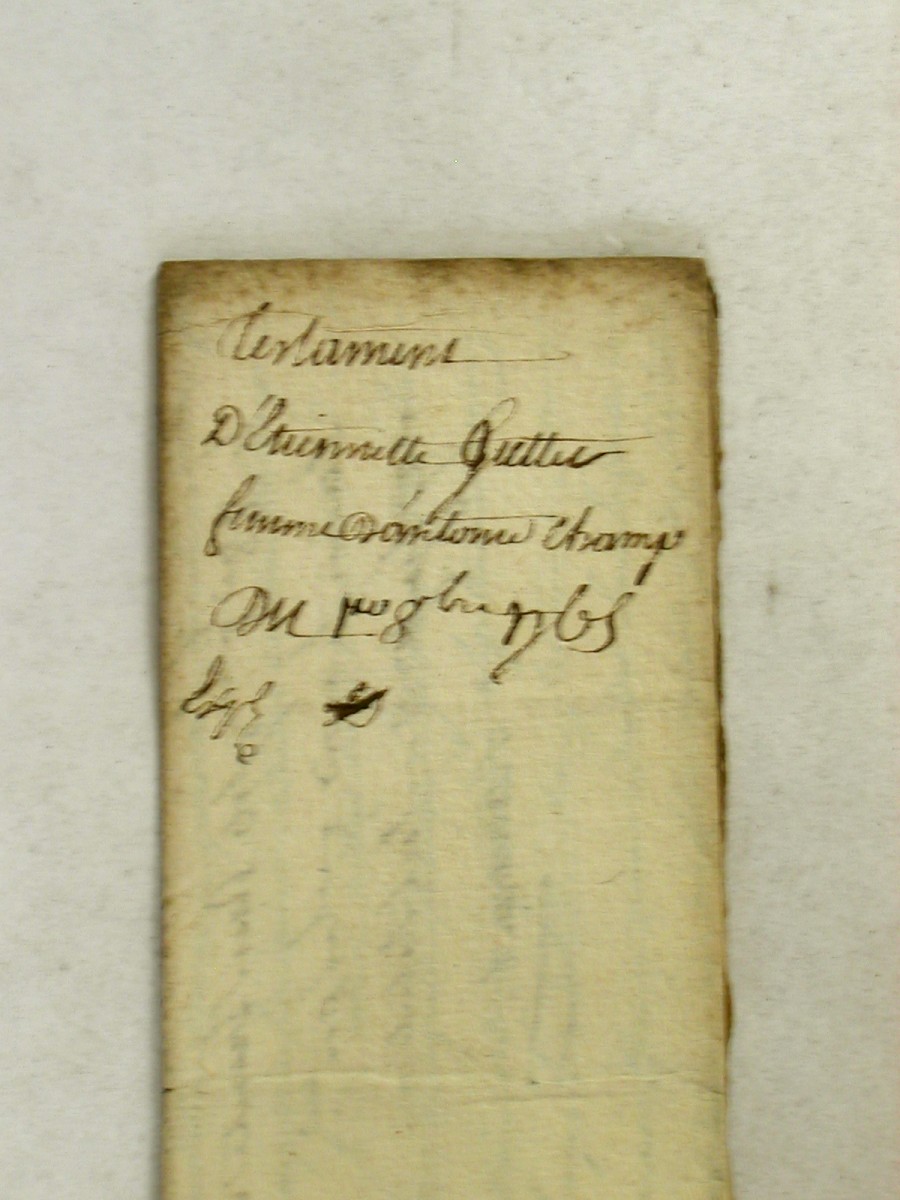 testament
D'Etiennette
femme d'antoine champ
Du 8bre 1765